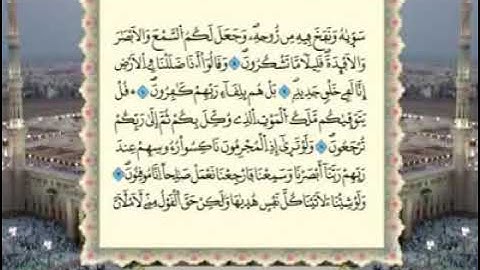 سَوّۭيٰهُ وَنَفَخَ فِيهِ مِن رُّوحِهِۦۖ وَجَعَلَ لَكُمُ السَّمْعَ وَالَابْصَٰرَ
وَالَافْـِٕدَةَۖ قَلِيلًا مَّا تَشْكُرُونَۖ وَقَالُوٓاْ أَ۟ذَا ضَلَلْنَا فِے الَارْضِ
إِنَّا لَفِے خَلْقٍ جَدِيدٍۖ بَلْ هُم بِلِقَآءِ رَبِّهِمْ كَٰفِرُونَۖ قُلْ
يَتَوَفّۭيٰكُم مَّلَكُ الْمَوْتِ الذِے وُكِّلَ بِكُمْ ثُمَّ إِلَيٰ رَبِّكُمْ
تُرْجَعُونَۖ وَلَوْ تَرَيٰٓ إِذِ الْمُجْرِمُونَ نَاكِسُواْ رُءُوسِهِمْ عِندَ
رَبِّهِمْ رَبَّنَآ أَبْصَرْنَا وَسَمِعْنَا فَارْجِعْنَا نَعْمَلْ صَٰلِحاً اِنَّا مُوقِنُونَۖ
وَلَوْ شِئْنَا ءَلَاتَيْنَا كُلَّ نَفْسٍ هُدۭيٰهَا وَلَٰكِنْ حَقَّ الْقَوْلُ مِنِّے لَأَمْلَأَنَّ